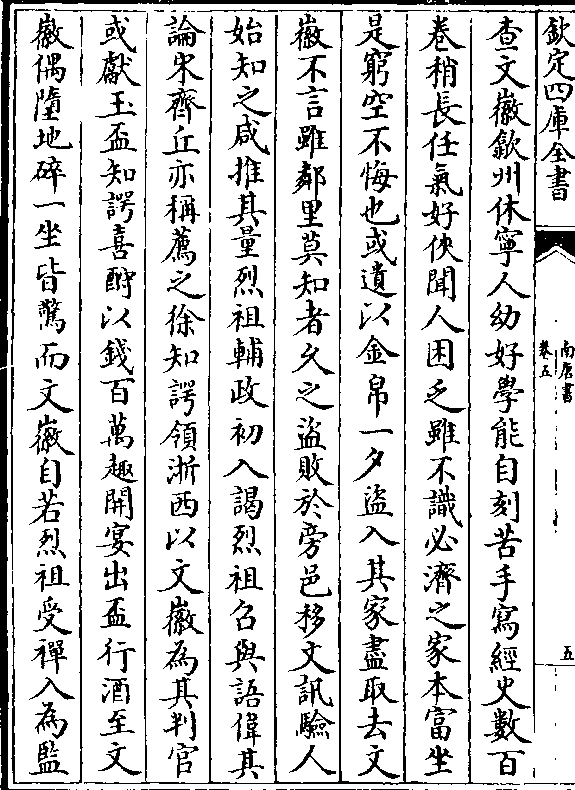 欽定四庫全書
南唐書
卷五
五
查文徽歙州休寧人幼好學能自刻苦手寫經史數百
卷稍長任氣好俠聞人困乏雖不識必濟之家本富坐
是窮空不悔也或遺以金帛一夕盜入其家盡取去文
徽不言雖鄰里莫知者久之盜敗於旁邑移文訊驗人
始知之咸推其量烈祖輔政初入謁烈祖召與語偉其
論宋齊丘亦稱薦之徐知諤領浙西以文徽為其判官
或獻玉盃知諤喜酧以錢百萬趣開宴出盃行酒至文
徽偶墮地碎一坐皆驚而文徽自若烈祖受禪入為監